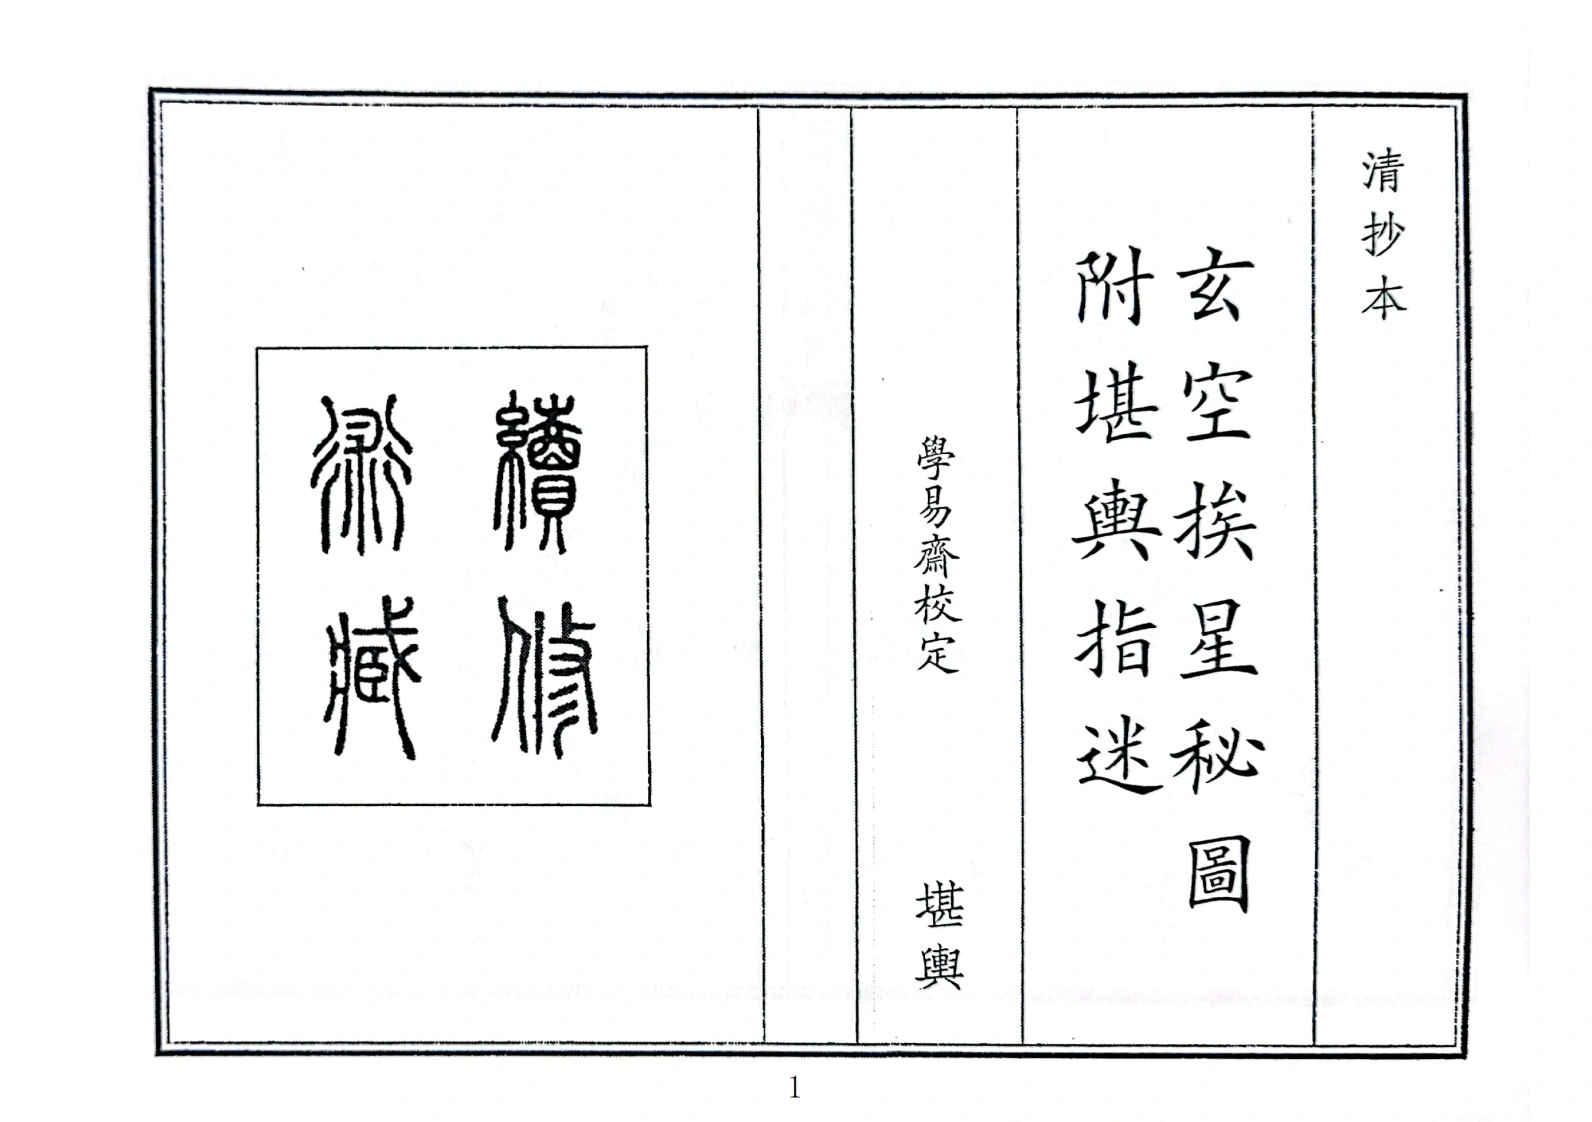 清抄本
玄空挨星秘圖
附堪輿指迷
學易齋校定
堪輿
續修
術藏
1